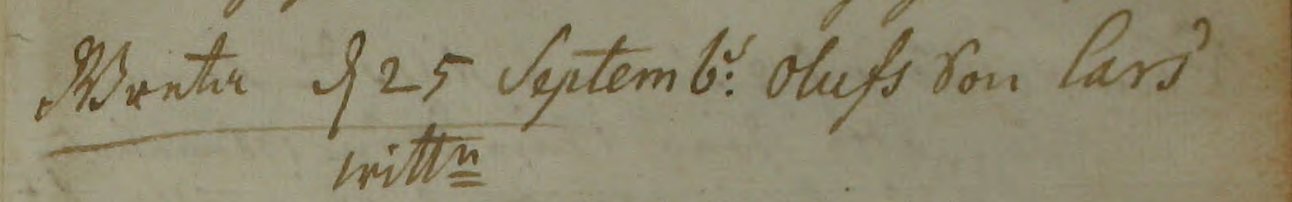 Wreta d 25 Septembr: Olufs Son Lars'
wittn